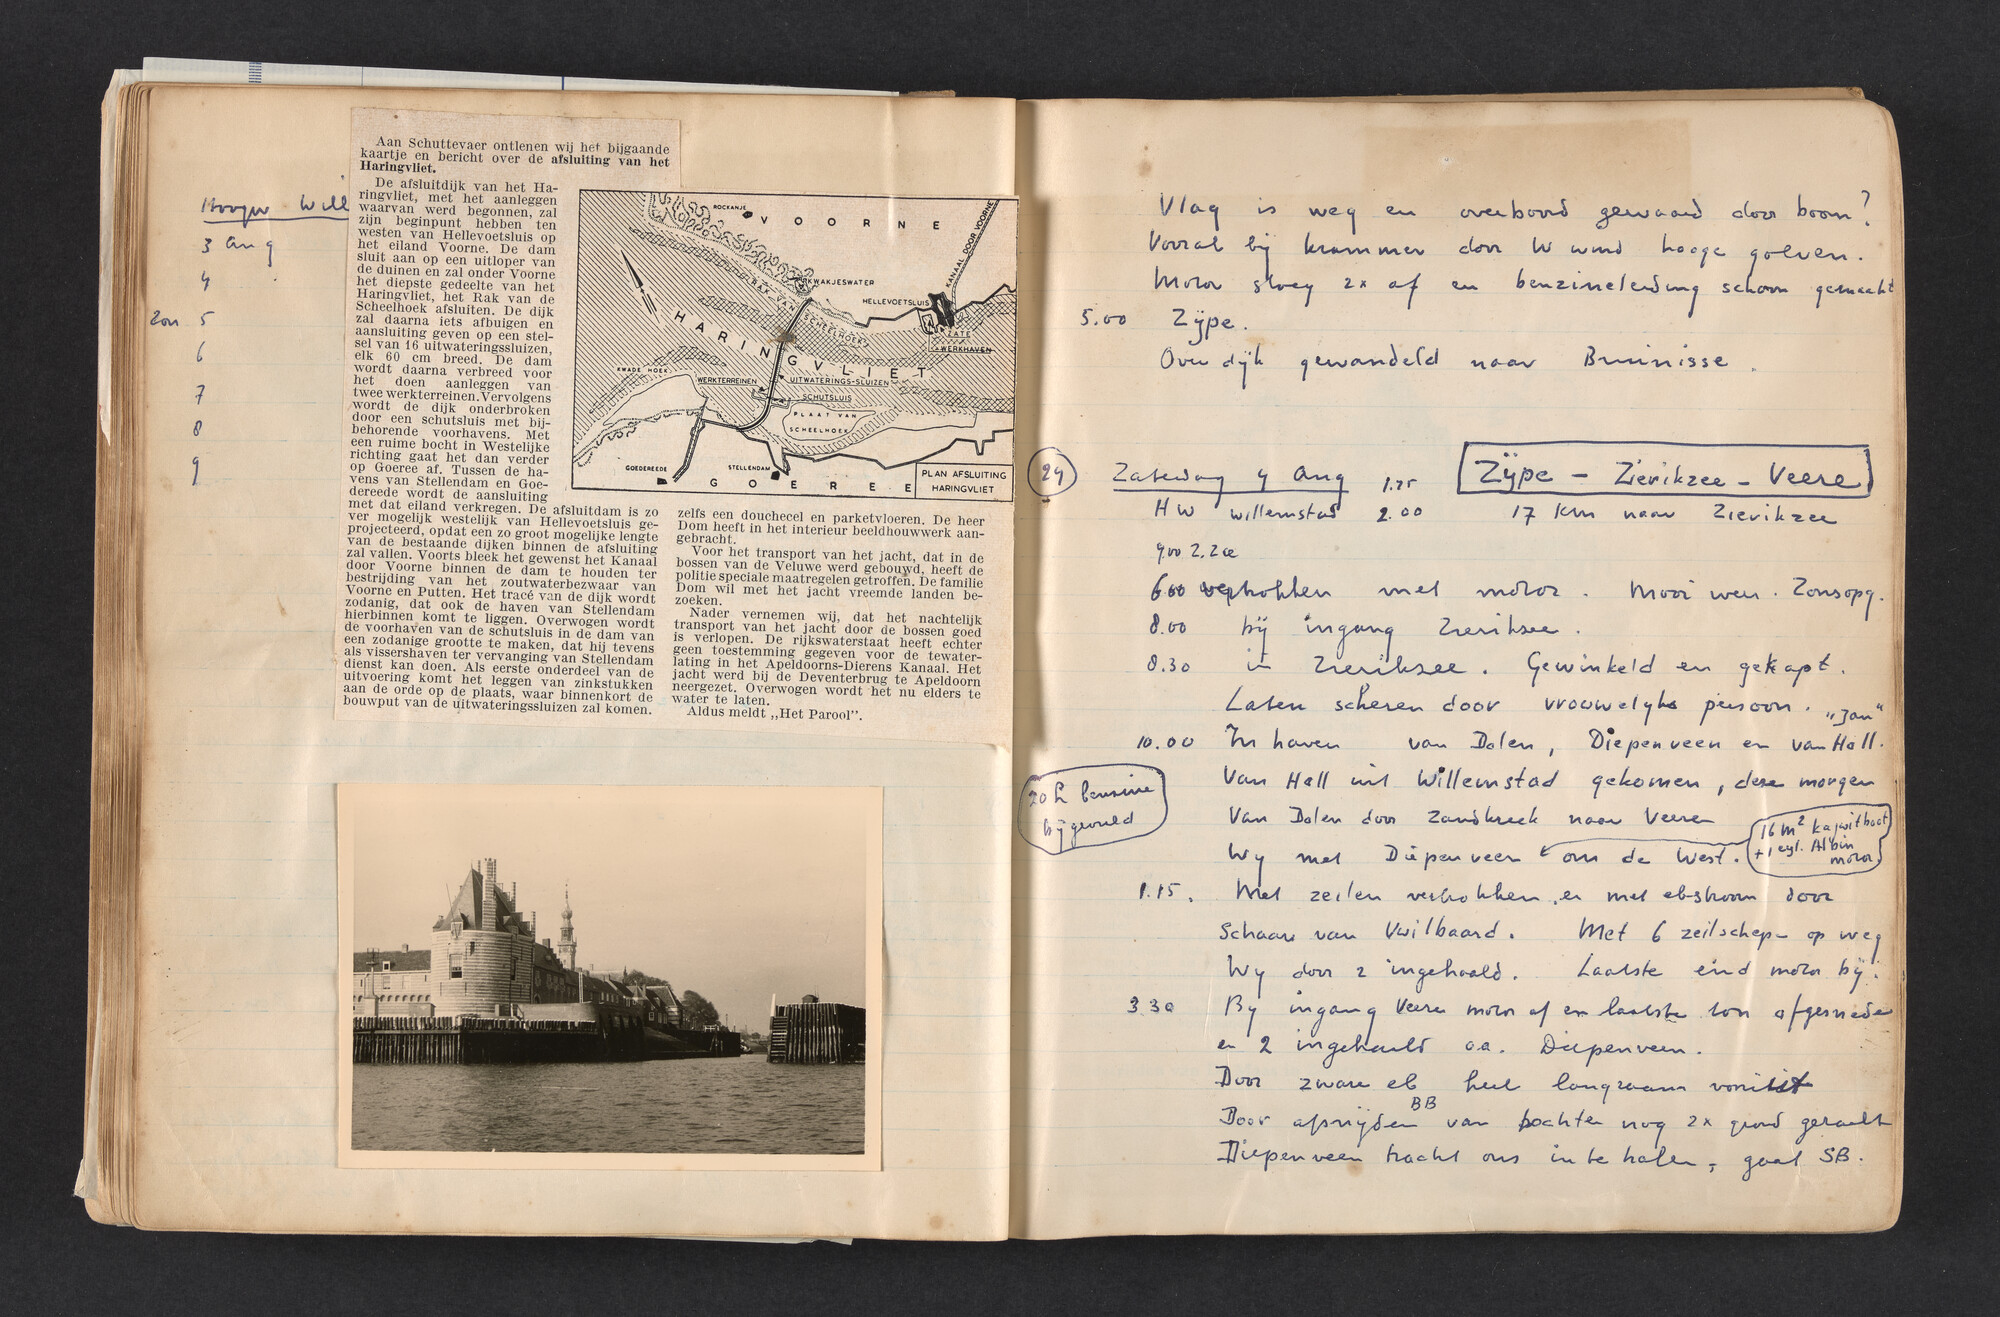 Aan Schuttevaer ontlenen wij het bijgaande
kaartje en bericht over de afsluiting van het
Haringvliet.
De afsluitdijk van het Ha-
ringvliet, met het aanleggen
waarvan werd begonnen, zal
zijn beginpunt hebben ten
westen van Hellevoetsluis op
het eiland Voorne. De dam
sluit aan op een uitloper van
de duinen en zal onder Voorne
het diepste gedeelte van het
Haringvliet, het Rak van de
Scheelhoek afsluiten. De dijk
zal daarna iets afbuigen en
aansluiting geven op een stel-
sel van 16 uitwateringssluizen,
elk 60 cm breed. De dam
wordt daarna verbreed voor
het doen aanleggen van
twee werkterreinen. Vervolgens
wordt de dijk onderbroken
door een schutsluis met bij-
behorende voorhavens. Met
een ruime bocht in Westelijke
richting gaat het dan verder
op Goeree af. Tussen de ha-
vens van Stellendam en Goe-
dereede wordt de aansluiting
met dat eiland verkregen. De afsluitdam is zo
ver mogelijk westelijk van Hellevoetsluis ge-
projecteerd, opdat een zo groot mogelijke lengte
van de bestaande dijken binnen de afsluiting
zal vallen. Voorts bleek het gewenst het Kanaal
door Voorne binnen de dam te houden ter
bestrijding van het zoutwaterbezwaar van
Voorne en Putten. Het tracé van de dijk wordt
zodanig, dat ook de haven van Stellendam
hierbinnen komt te liggen. Overwogen wordt
de voorhaven van de schutsluis in de dam van
een zodanige grootte te maken, dat hij tevens
als vissershaven ter vervanging van Stellendam
dienst kan doen. Als eerste onderdeel van de
uitvoering komt het leggen van zinkstukken
aan de orde op de plaats, waar binnenkort de
bouwput van de uitwateringssluizen zal komen.
zelfs een douchecel en parketvloeren. De heer
Dom heeft in het interieur beeldhouwwerk aan-
gebracht.
Voor het transport van het jacht, dat in de
bossen van de Veluwe werd gebouwd, heeft de
politie speciale maatregelen getroffen. De familie
Dom wil met het jacht vreemde landen be-
zoeken.
Nader vernemen wij, dat het nachtelijk
transport van het jacht door de bossen goed
is verlopen. De rijkswaterstaat heeft echter
geen toestemming gegeven voor de tewater-
lating in het Apeldoorns-Dierens Kanaal. Het
jacht werd bij de Deventerbrug te Apeldoorn
neergezet. Overwogen wordt het nu elders te
water te laten.
Aldus meldt „Het Parool”.
ROCKANJE
VOORNE
KANAAL DOOR VOORNE
KWAKJESWATER
HELLEVOETSLUIS
RAK VAN SCHEELHOEK
ZATE
WERKHAVEN
HARINGVLIET
KWADE HOEK
WERKTERREINEN
UITWATERINGS-SLUIZEN
SCHUTSLUIS
PLAAT VAN
SCHEELHOEK
GOEDEREEDE
STELLENDAM
GOEREE
PLAN AFSLUITING
HARINGVLIET
Will
3 Aug
4
Zon 5
6
7
8
9
Vlag is weg en overboord gewaaid door boom?
Vooral bij krammer door W wind hooge golven.
Motor sloeg 2x af en benzineleiding schoon gemaakt
5.00 Zÿpe.
Over dijk gewandeld naar Bruinisse.
24 Zaterdag 4 Aug 1.25 Zÿpe - Zierikzee - Veere
HW Willemstad 2.00 17 km naar Zierikzee
6.00 vertrokken met motor. Mooi weer. Zonsopg.
8.00 bij ingang Zierikzee.
8.30 in Zierikzee. Gewinkeld en gekapt.
Laten scheren door vrouwelijk persoon. "Jan"
10.00 In haven van Dalen, Diepenveen en van Hall.
Van Hall uit Willemstad gekomen, deze morgen
20 L benzine
bijgevuld
Van Dalen door Zandkreek naar Veere
16 m² kajuitboot
+ 1 cyl. Albin
motor
Wy met Diepenveen om de West.
1.15. Met zeilen vertrokken en met ebstroom door
Schaar van Vuilbaard. Met 6 zeilschep- op weg
Wy door 2 ingehaald. Laatste eind motor bÿ.
3.30 By ingang Veere motor af en laatste ton afgesneden
en 2 ingehaald o.a. Diepenveen.
Door zware eb heel langzaam vooruit
Door afsnijden BB van bochten nog 2x grond geraakt
Diepenveen tracht ons in te halen, gaat SB.